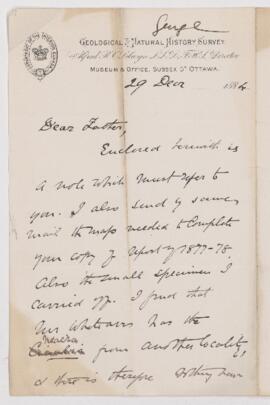 GEOLOGICAL & NATURAL HISTORY SURVEY
Alfred R. C. Selwyn L.L.D. F.R.S. Director
MUSEUM & OFFICE, SUSSEX St OTTAWA.
29 Decr 1884
Dear Father,
Enclosed herewith is
a note which must refer to
you. I also send by same
mail the map needed to complete
your copy of report of 1877-78.
Also the small specimen I
carried off. I find that
Mr Whiteaves has the
from another locality,
& there is therefore nothing new